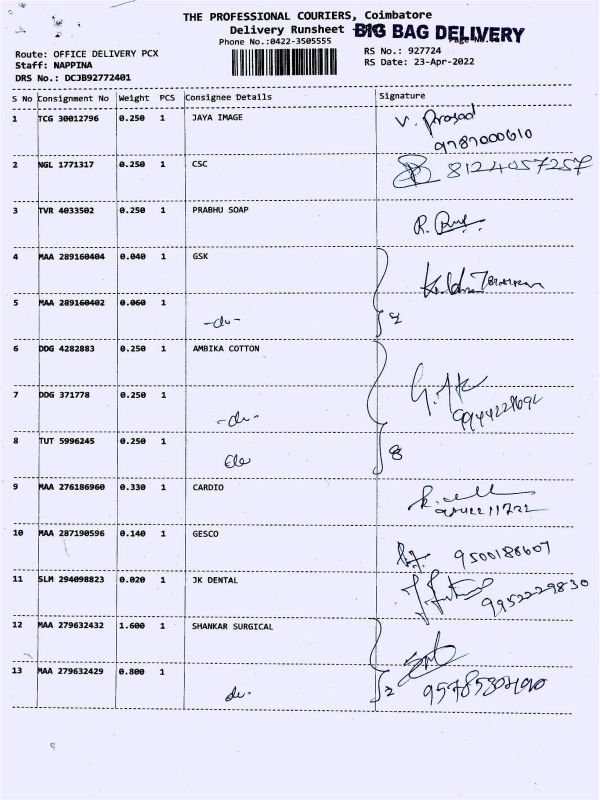 THE PROFESSIONAL COURIERS, Coimbatore
Delivery Runsheet
BIG BAG DELIVERY
Phone No.:0422-3505555
Route: OFFICE DELIVERY PCX
RS No.: 927724
Staff: NAPPINA
RS Date: 23-Apr-2022
DRS No.: DCJB92772401
S No Consignment No Weight PCS Consignee Details Signature
1 TCG 30012796 0.250 1 JAYA IMAGE V. Prasad
9787000610
2 NGL 1771317 0.250 1 CSC 8124057257
3 TVR 4033502 0.250 1 PRABHU SOAP R.
4 MAA 289160404 0.040 1 GSK
5 MAA 289160402 0.060 1
-do- 2
6 DDG 4282883 0.250 1 AMBIKA COTTON
7 DDG 371778 0.250 1
-do-
8 TUT 5996245 0.250 1
8
9 MAA 276186960 0.330 1 CARDIO
10 MAA 287190596 0.140 1 GESCO
9500188607
11 SLM 294098823 0.020 1 JK DENTAL
9952229830
12 MAA 279632432 1.600 1 SHANKAR SURGICAL
13 MAA 279632429 0.800 1
do. 2